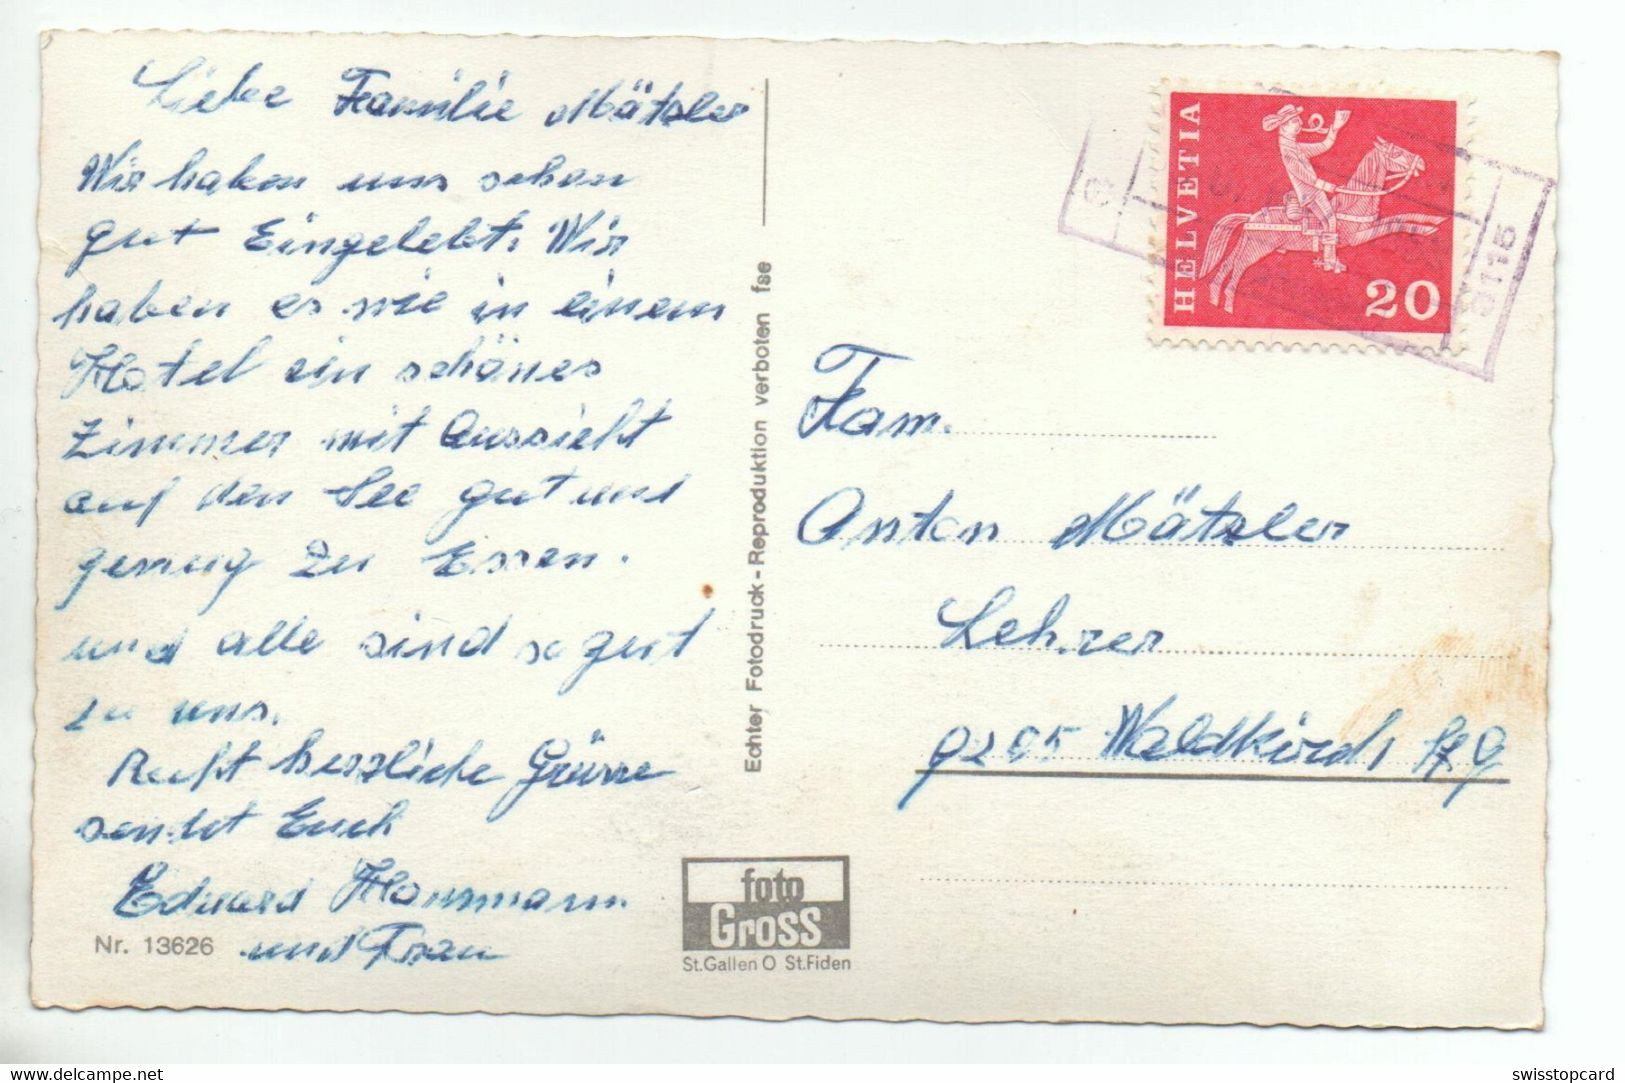 Liebe Familie Mätzler
Wir haben uns schon
gut Eingelebt. Wir
haben es wie in einem
Hotel ein schönes
Zimmer mit Aussicht
auf den See gut und
genug zu Essen.
und alle sind so gut
zu uns.
Recht herzliche Grüsse
sendet Euch
Eduard
und Frau
Nr. 13626
Echter Fotodruck - Reproduktion verboten fse
foto
Gross
St.Gallen O St.Fiden
HELVETIA
20
Fam.
Anton Mätzler
Lehrer
9205 Waldkirch St. G
delcampe.net
swisstopcard